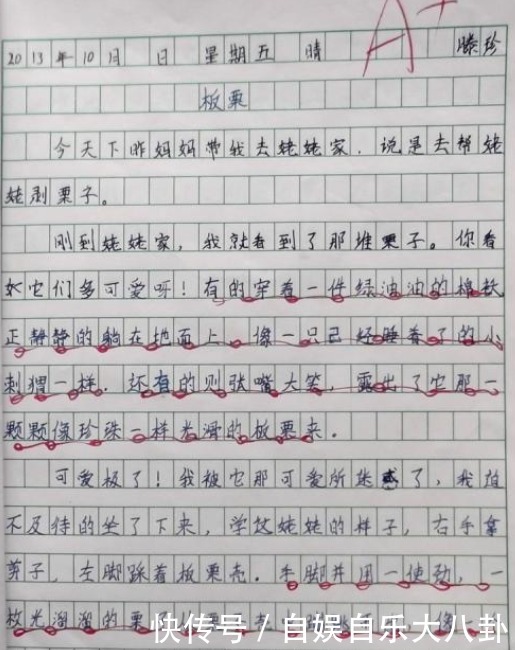 2013年10月 日 星期五 晴 A+ 滕珍
板栗
今天下昨妈妈带我去姥姥家，说是去帮姥
姥剥栗子。
刚到姥姥家，我就看到了那堆栗子。你看
它们多可爱呀！有的穿着一件绿油油的棉袄
正静静的躺在地面上。像一只已经睡着了的小
刺猬一样．还有的则张嘴大笑，露出了它那一
颗颗像珍珠一样光滑的板栗来．
可爱极了！我被它那可爱所迷惑了，我迫
不及待的坐了下来，学这姥姥的样子，右手拿
剪子，左脚踩着板栗壳．手脚并用一使劲，一
枚光溜溜的栗
快传号 / 自娱自乐大八卦